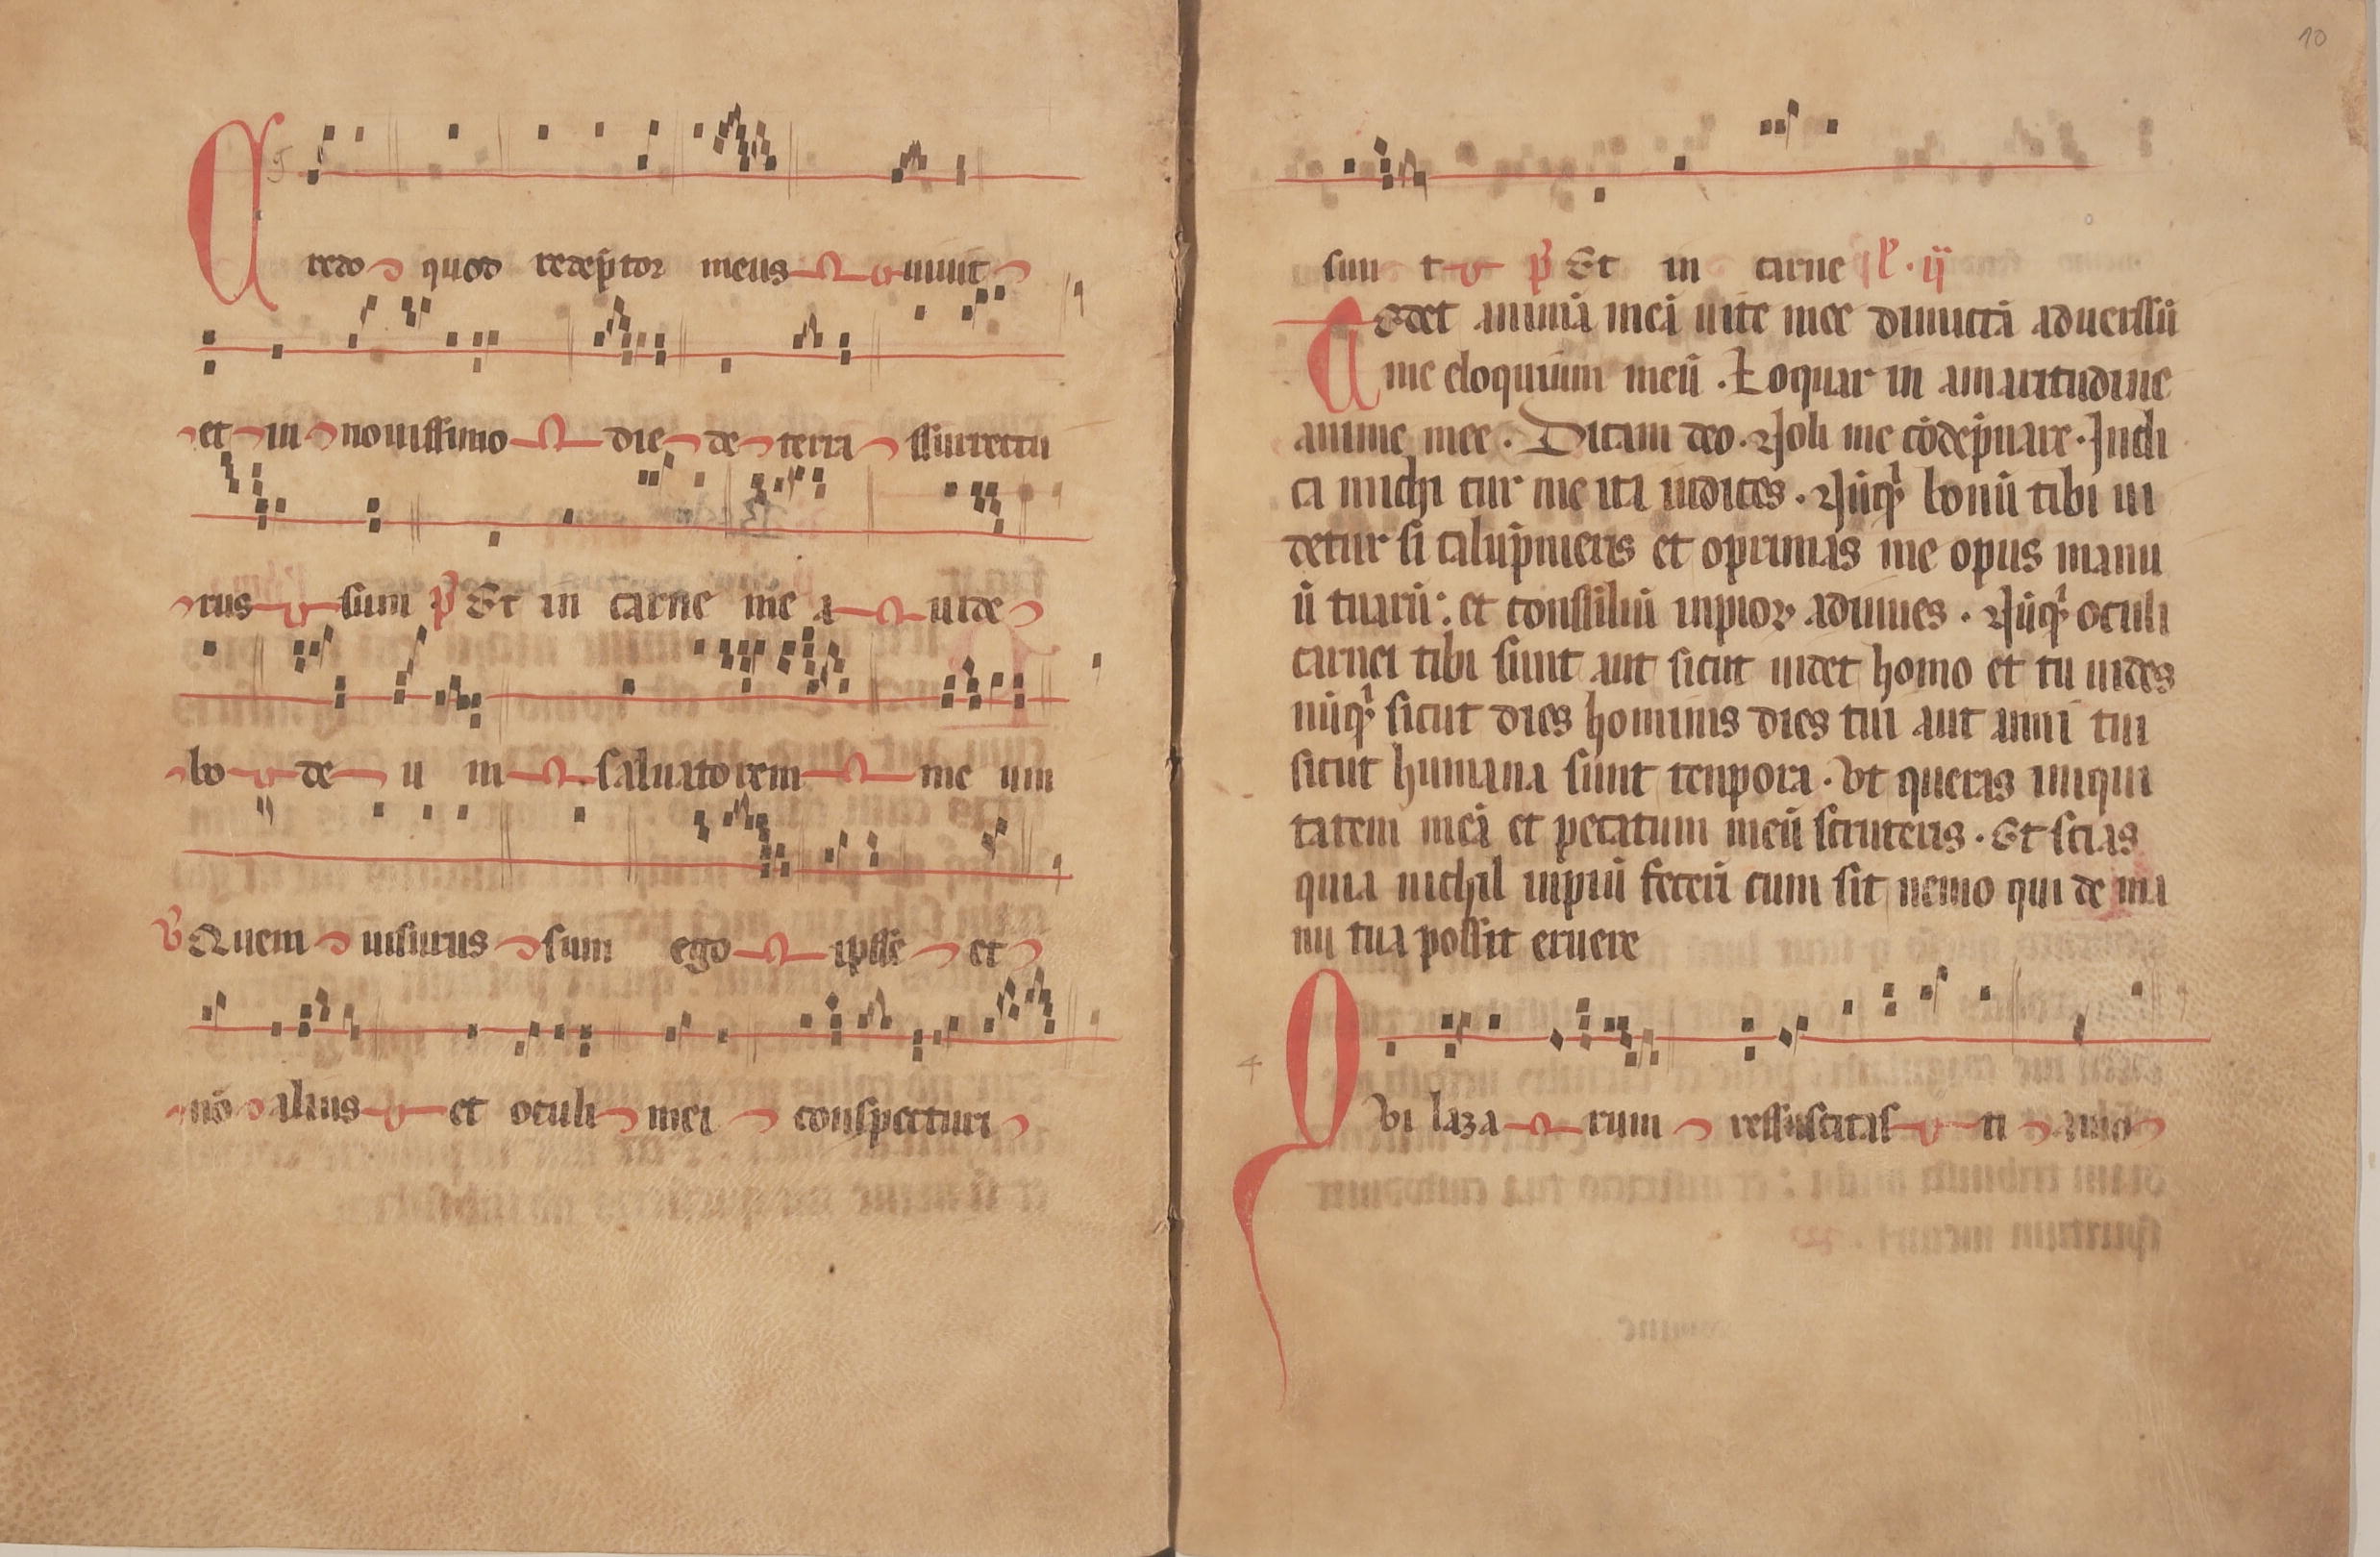 Credo quod redeptor meus uiuit
et in nouissimo die de terra ssurrectu
rus sum p̄ Et in carne me a uide
bo de u m saluatorem me um
V Quem uisurus sum ego ipsse et
nō alius et oculi mei conspecturi
10
sun t p̄ Et in carne ł. ij
Tedet animā meā uite mee dimictā aduerssū
me eloquium meū. Loquar in amaritudine
anime mee. Dicam deo. Noli me cōdēpnare. Indi
ca michi cur me ita iudices. Nūq͛ bonū tibi ui
detur si calūpnieris et oprimas me opus manu
ū tuarū: et conssiliū inpioꝝ adiuues. Nūq͛ oculi
carnei tibi sunt aut sicut uidet homo et tu uides
nūq͛ sicut dies hominis dies tui aut anni tui
sicut humana sunt tenpora. Vt queras iniqui
tatem meā et pecatum meū scruteris. Et scias
quia nichil inpiū feceri cum sit nemo qui de ma
nu tua possit eruere
4
Qui lazarum ressuscitasti amo